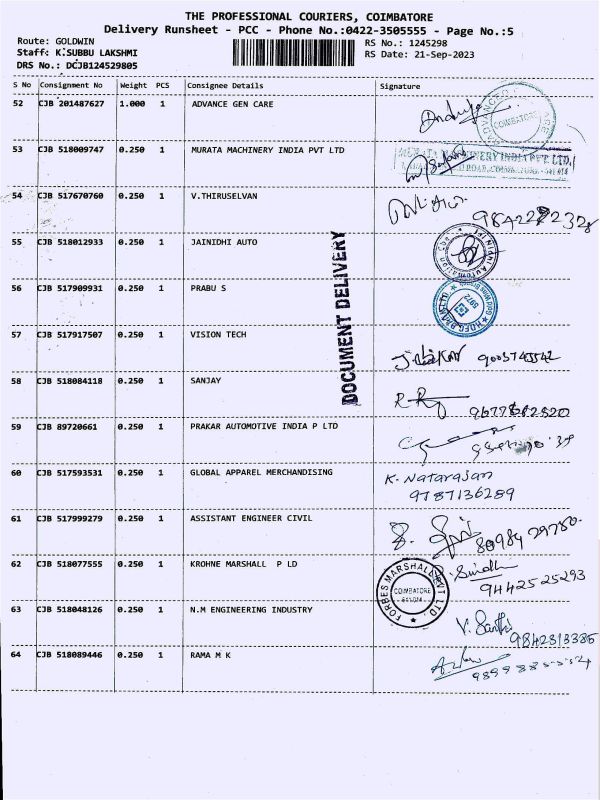 THE PROFESSIONAL COURIERS, COIMBATORE
Delivery Runsheet - PCC - Phone No.:0422-3505555 - Page No.:5
Route: GOLDWIN RS No.: 1245298
Staff: K.SUBBU LAKSHMI RS Date: 21-Sep-2023
DRS No.: DCJB124529805
S No Consignment No Weight PCS Consignee Details Signature
52 CJB 201487627 1.000 1 ADVANCE GEN CARE
COIMBATORE
53 CJB 518009747 0.250 1 MURATA MACHINERY INDIA PVT LTD
MURATA MACHINERY INDIA PVT. LTD.
54 CJB 517670760 0.250 1 V.THIRUSELVAN
55 CJB 518012933 0.250 1 JAINIDHI AUTO
DOCUMENT DELIVERY
56 CJB 517909931 0.250 1 PRABU S
57 CJB 517917507 0.250 1 VISION TECH
58 CJB 518084118 0.250 1 SANJAY
59 CJB 89720661 0.250 1 PRAKAR AUTOMOTIVE INDIA P LTD
60 CJB 517593531 0.250 1 GLOBAL APPAREL MERCHANDISING
K. Natarajan
9787136289
61 CJB 517999279 0.250 1 ASSISTANT ENGINEER CIVIL
62 CJB 518077555 0.250 1 KROHNE MARSHALL P LD
FORBES MARSHALL PVT LTD.
COIMBATORE
9442525293
63 CJB 518048126 0.250 1 N.M ENGINEERING INDUSTRY
9842813385
64 CJB 518089446 0.250 1 RAMA M K